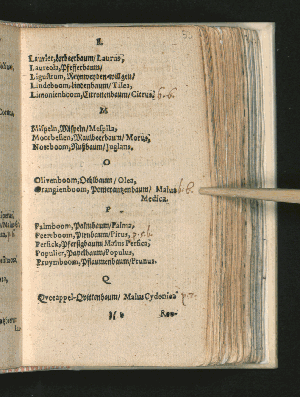 L
Laurier, Lorbeerbaum/ Laurus,
Laureola, Pfefferbaum/
Ligustrum, Reynweyden-willgen/
Lindeboom, Lindenbaum/ Tilea,
Limonienboom, Citronenbaum/ Citrus.
M
Mispeln, Mispeln/ Mespila,
Moerbesien, Maulbeerbaum/ Morus,
Noteboom, Nußbaum/ Juglans,
O
Olivenboom, Oehlbaum/ Olea,
Orangienboom, Pomerantzenbaum/ Malus
Medica.
P
Palmboom, Palmbaum/ Palma,
Peereboom, Birnbaum/ Pirus,
Persick, Pfersigbaum Malus Persica,
Populier, Papelbaum/ Populus,
Pruymboom, Pflaumenbaum/ Prunus.
Q
Queeappel-Quittenbaum/ Malus Cydonia